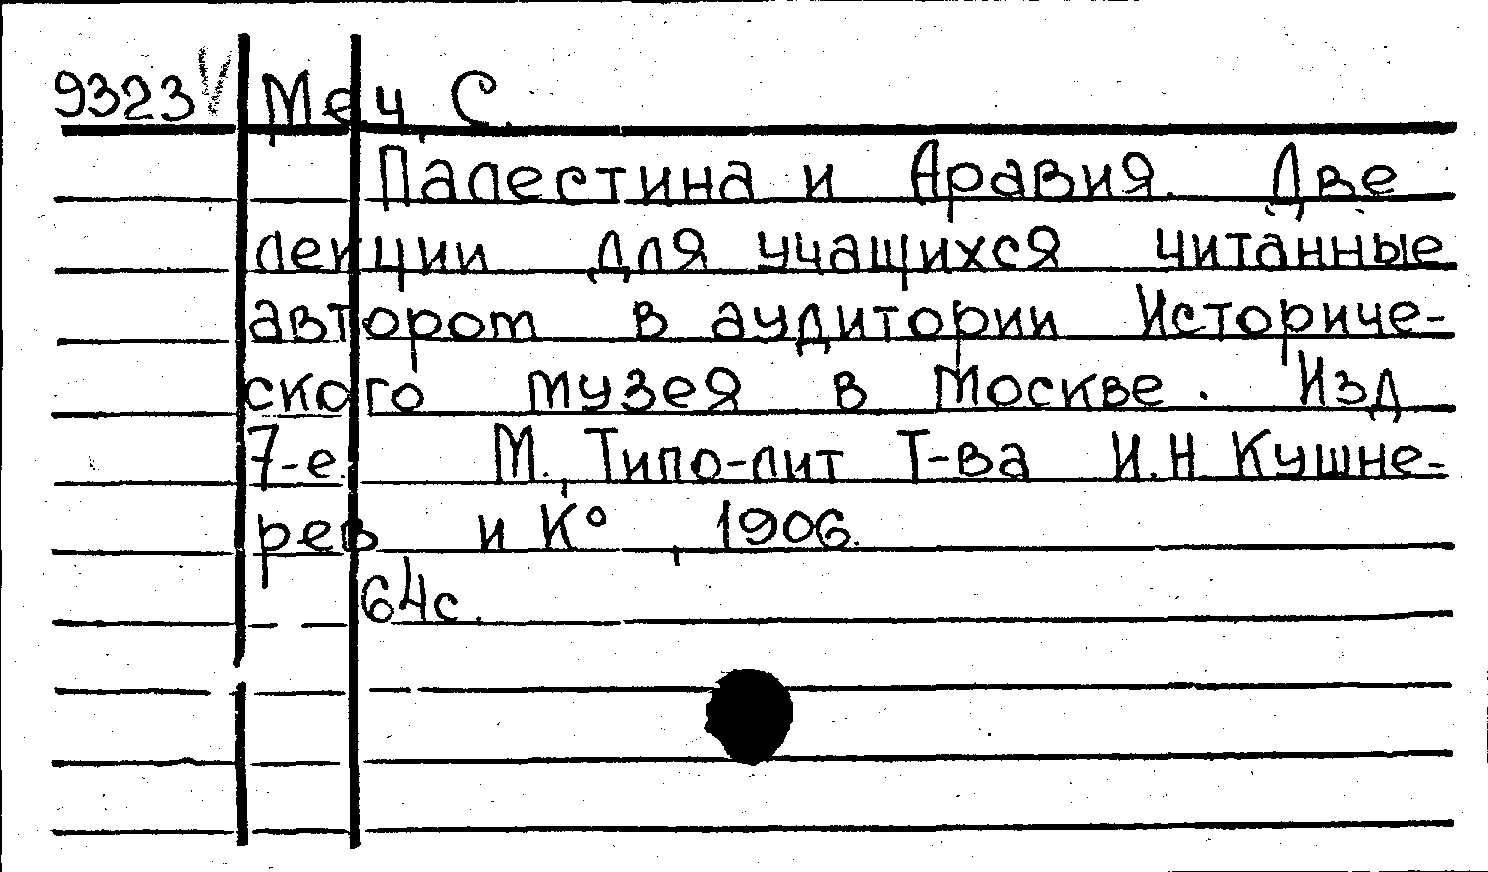 9323 Меч, С.
Палестина и Аравия. Две
лекции для учащихся читанные
автором в аудитории Историче-
ского музея в Москве. Изд
7-е. М., Типо-лит Т-ва И.Н Кушне-
рев и К°, 1906.
64с.